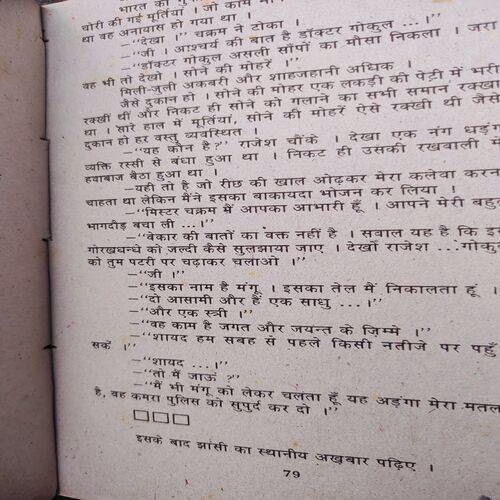 भारत की
चोरी की गई मूर्तियां । जो काम
था वह अनायास हो गया था ।
–"देखा ।" चक्रम ने टोका ।
–"जी । आश्चर्य की बात है डॉक्टर गोकुल ... ।"
–"डॉक्टर गोकुल असली सांपों का मौसा निकला । जरा
वह भी तो देखो । सोने की मोहरें ।"
मिली-जुली अकबरी और शाहजहानी अधिक ।
जैसे दुकान हो । सोने की मोहर एक लकड़ी की पेटी में भरी
रक्खीं थीं और निकट ही सोने को गलाने का सभी समान रक्खा
था । सारे हाल में मूर्तियां, सोने की मोहरें ऐसे रक्खी थी जैसे
दुकान हो हर वस्तु व्यवस्थित ।
–"यह कौन है?" राजेश चौंके । देखा एक नंग धड़ंग
व्यक्ति रस्सी से बंधा हुआ था । निकट ही उसकी रखवाली में
हवाबाज बैठा हुआ था ।
–यही तो है जो रीछ की खाल ओढ़कर मेरा कलेवा करना
चाहता था लेकिन मैंने इसका बाकायदा भोजन कर लिया ।
–"मिस्टर चक्रम मैं आपका आभारी हूँ । आपने मेरी बहुत
भागदौड़ बचा ली ... ।"
–"बेकार की बातों का वक्त नहीं है । सवाल यह है कि इस
गोरखधन्धे को जल्दी कैसे सुलझाया जाए । देखो राजेश ...गोकुल
को तुम पटरी पर चढ़ाकर चलाओ ।"
–"जी ।"
–"इसका नाम है मंगू । इसका तेल मैं निकालता हूं ।
–"दो आसामी और हैं एक साधु ... ।"
–"और एक स्त्री ।"
–"वह काम है जगत और जयन्त के ज़िम्मे ।"
–"शायद हम सबह से पहले किसी नतीजे पर पहुँ
सकें ।"
–"शायद ... ।"
–"तो मैं जाऊं ?"
–"मैं भी मंगू को लेकर चलता हूँ यह अड़ंगा मेरा मतल
है, वह कमरा पुलिस को सुपुर्द कर दो ।"
इसके बाद झांसी का स्थानीय अखबार पढ़िए ।
79